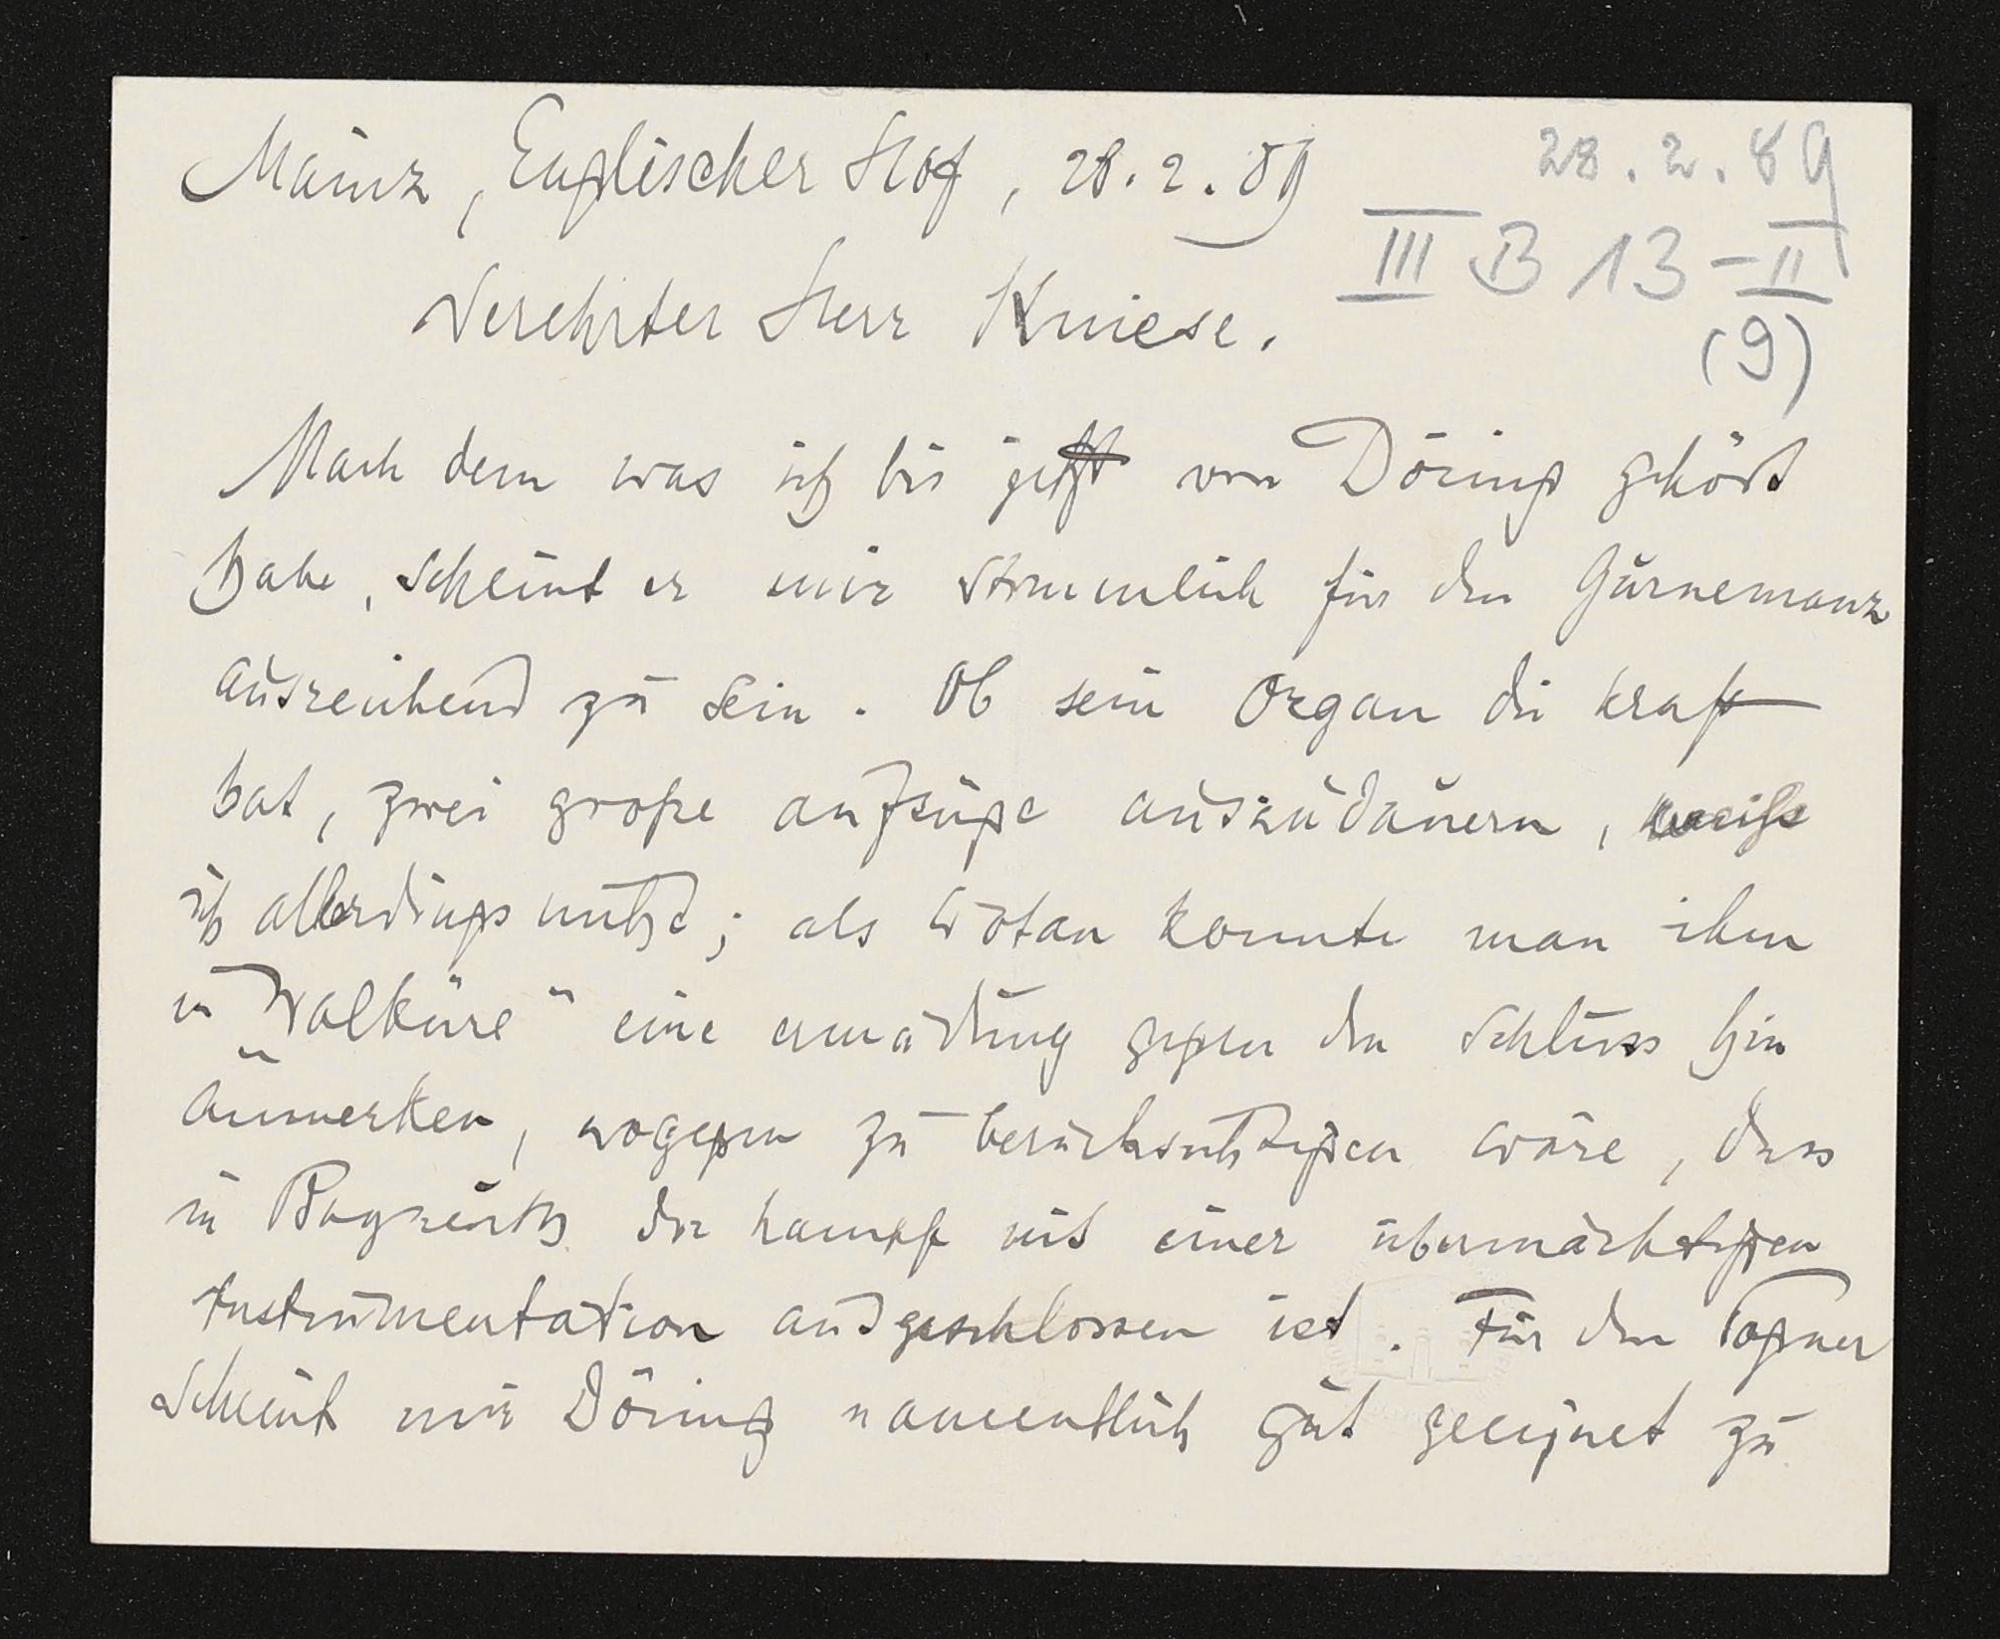 Mainz, Englischer Hof, 28.2.89
28.2.89
III B 13-II
(9)
Verehrter Herr Kniese.
Nach dem was ich bis jetzt von Döring gehört
habe, scheint er mir stimmlich für den Gurnemanz
ausreichend zu sein. Ob sein Organ die Kraft
hat, zwei große Aufzüge auszudauern, weiß
ich allerdings nicht; als Wotan konnte man ihm
in „Walküre" eine Ermattung gegen den Schluss hin
anmerken, wogegen zu berücksichtigen wäre, dass
in Bayreuth der Kampf mit einer übermächtigen
Instrumentation ausgeschlossen ist. Für den Pogner
scheint mir Döring namentlich gut geeignet zu